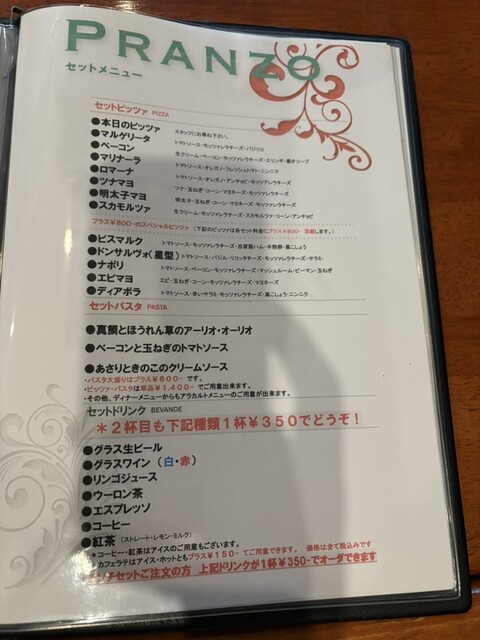 PRANZO
セットメニュー
セットピッツァ PIZZA
●本日のピッツァ スタッフにお尋ね下さい。
●マルゲリータ トマトソース・モッツァレラチーズ・バジリコ
●ベーコン 生クリーム・ベーコン・モッツァレラチーズ・エリンギ・黒オリーブ
●マリナーラ トマトソース・オレガノ・フレッシュトマト・ニンニク
●ロマーナ トマトソース・オレガノ・アンチョビ・モッツァレラチーズ
●ツナマヨ ツナ・玉ねぎ・コーン・マヨネーズ・モッツァレラチーズ
●明太子マヨ 明太子・玉ねぎ・コーン・マヨネーズ・モッツァレラチーズ
●スカモルツァ 生クリーム・モッツァレラチーズ・スカモルツァ・コーン・アンチョビ
プラス¥800-のスペシャルピッツァ (下記のピッツァは各セット料金にプラス¥800- 頂戴します。)
●ビスマルク トマトソース・モッツァレラチーズ・自家製ハム・半熟卵・黒こしょう
●ドンサルヴォ(星型) トマトソース・バジル・リコッタチーズ・モッツァレラチーズ・サラミ
●ナポリ トマトソース・ベーコン・モッツァレラチーズ・マッシュルーム・ピーマン・玉ねぎ
●エビマヨ エビ・玉ねぎ・コーン・モッツァレラチーズ・マヨネーズ
●ディアボラ トマトソース・辛いサラミ・モッツァレラチーズ・黒こしょう・ニンニク
セットパスタ PASTA
●真鯛とほうれん草のアーリオ・オーリオ
●ベーコンと玉ねぎのトマトソース
●あさりときのこのクリームソース
・パスタ大盛りはプラス¥600- です。
・ピッツァ・パスタは単品¥1,400- でご用意出来ます。
・その他、ディナーメニューからもアラカルトメニューのご用意が出来ます。
セットドリンク BEVANDE
*2杯目も下記種類1杯¥350でどうぞ！
●グラス生ビール
●グラスワイン (白・赤)
●リンゴジュース
●ウーロン茶
●エスプレッソ
●コーヒー
●紅茶 (ストレート・レモン・ミルク)
*コーヒー・紅茶はアイスのご用意もございます。
*カフェラテはアイス・ホットともプラス¥150- でご用意出来ます。 価格は全て税込みです
ンチセットご注文の方 上記ドリンクが1杯¥350-でオーダできます